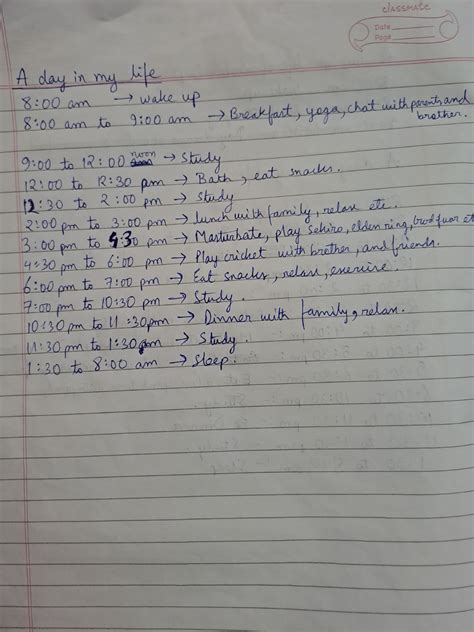 classmate
Date
Page
A day in my life
8:00 am → wake up
8:00 am to 9:00 am → Breakfast, yoga, chat with parents and
brother.
9:00 to 12:00 noon → Study
12:00 to 12:30 pm → Bath, eat snacks.
12:30 to 2:00 pm → Study
2:00 pm to 3:00 pm → lunch with family, relax etc.
3:00 pm to 4:30 pm → Masturbate, play sekiro, elden ring, etc
4:30 pm to 6:00 pm → Play cricket with brother, and friends.
6:00 pm to 7:00 pm → Eat snacks, relax, exercise.
7:00 pm to 10:30 pm → Study.
10:30 pm to 11:30pm → Dinner with family, relax.
11:30 pm to 1:30pm → Study.
1:30 to 8:00 am → Sleep.